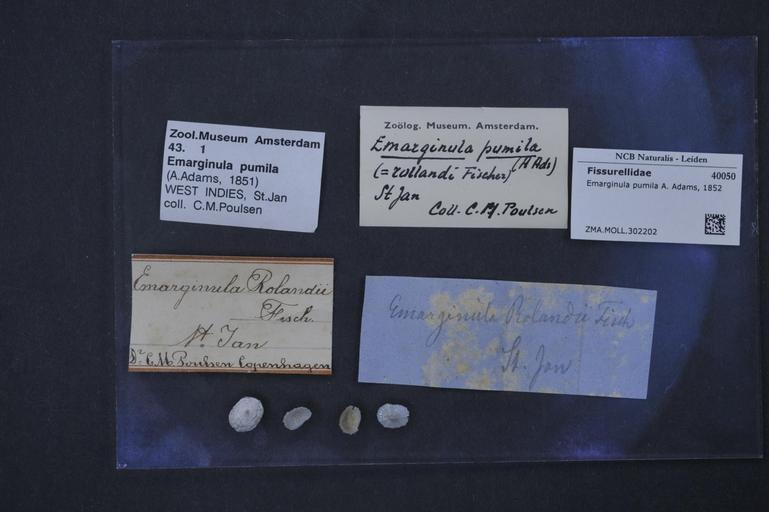 Zool.Museum Amsterdam
43. 1
Emarginula pumila
(A.Adams, 1851)
WEST INDIES, St.Jan
coll. C.M.Poulsen
Zoölog. Museum. Amsterdam.
Emarginula pumila
(A Ads)
(= rollandi Fischer)
St Jan
Coll. C. M. Poulsen
NCB Naturalis - Leiden
Fissurellidae 40050
Emarginula pumila A. Adams, 1852
ZMA.MOLL.302202
Emarginula Rolandii
Fisch.
St. Jan
Dr. C M Poulsen Copenhagen
Emarginula Rolandii Fisch
St. Jan